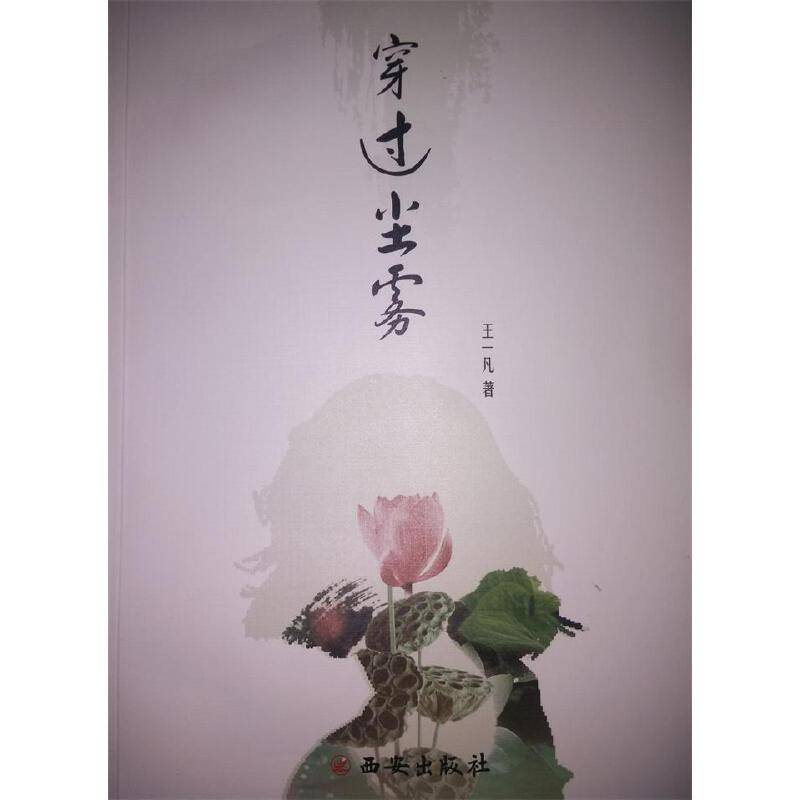 穿过尘雾
王一凡 著
西安出版社